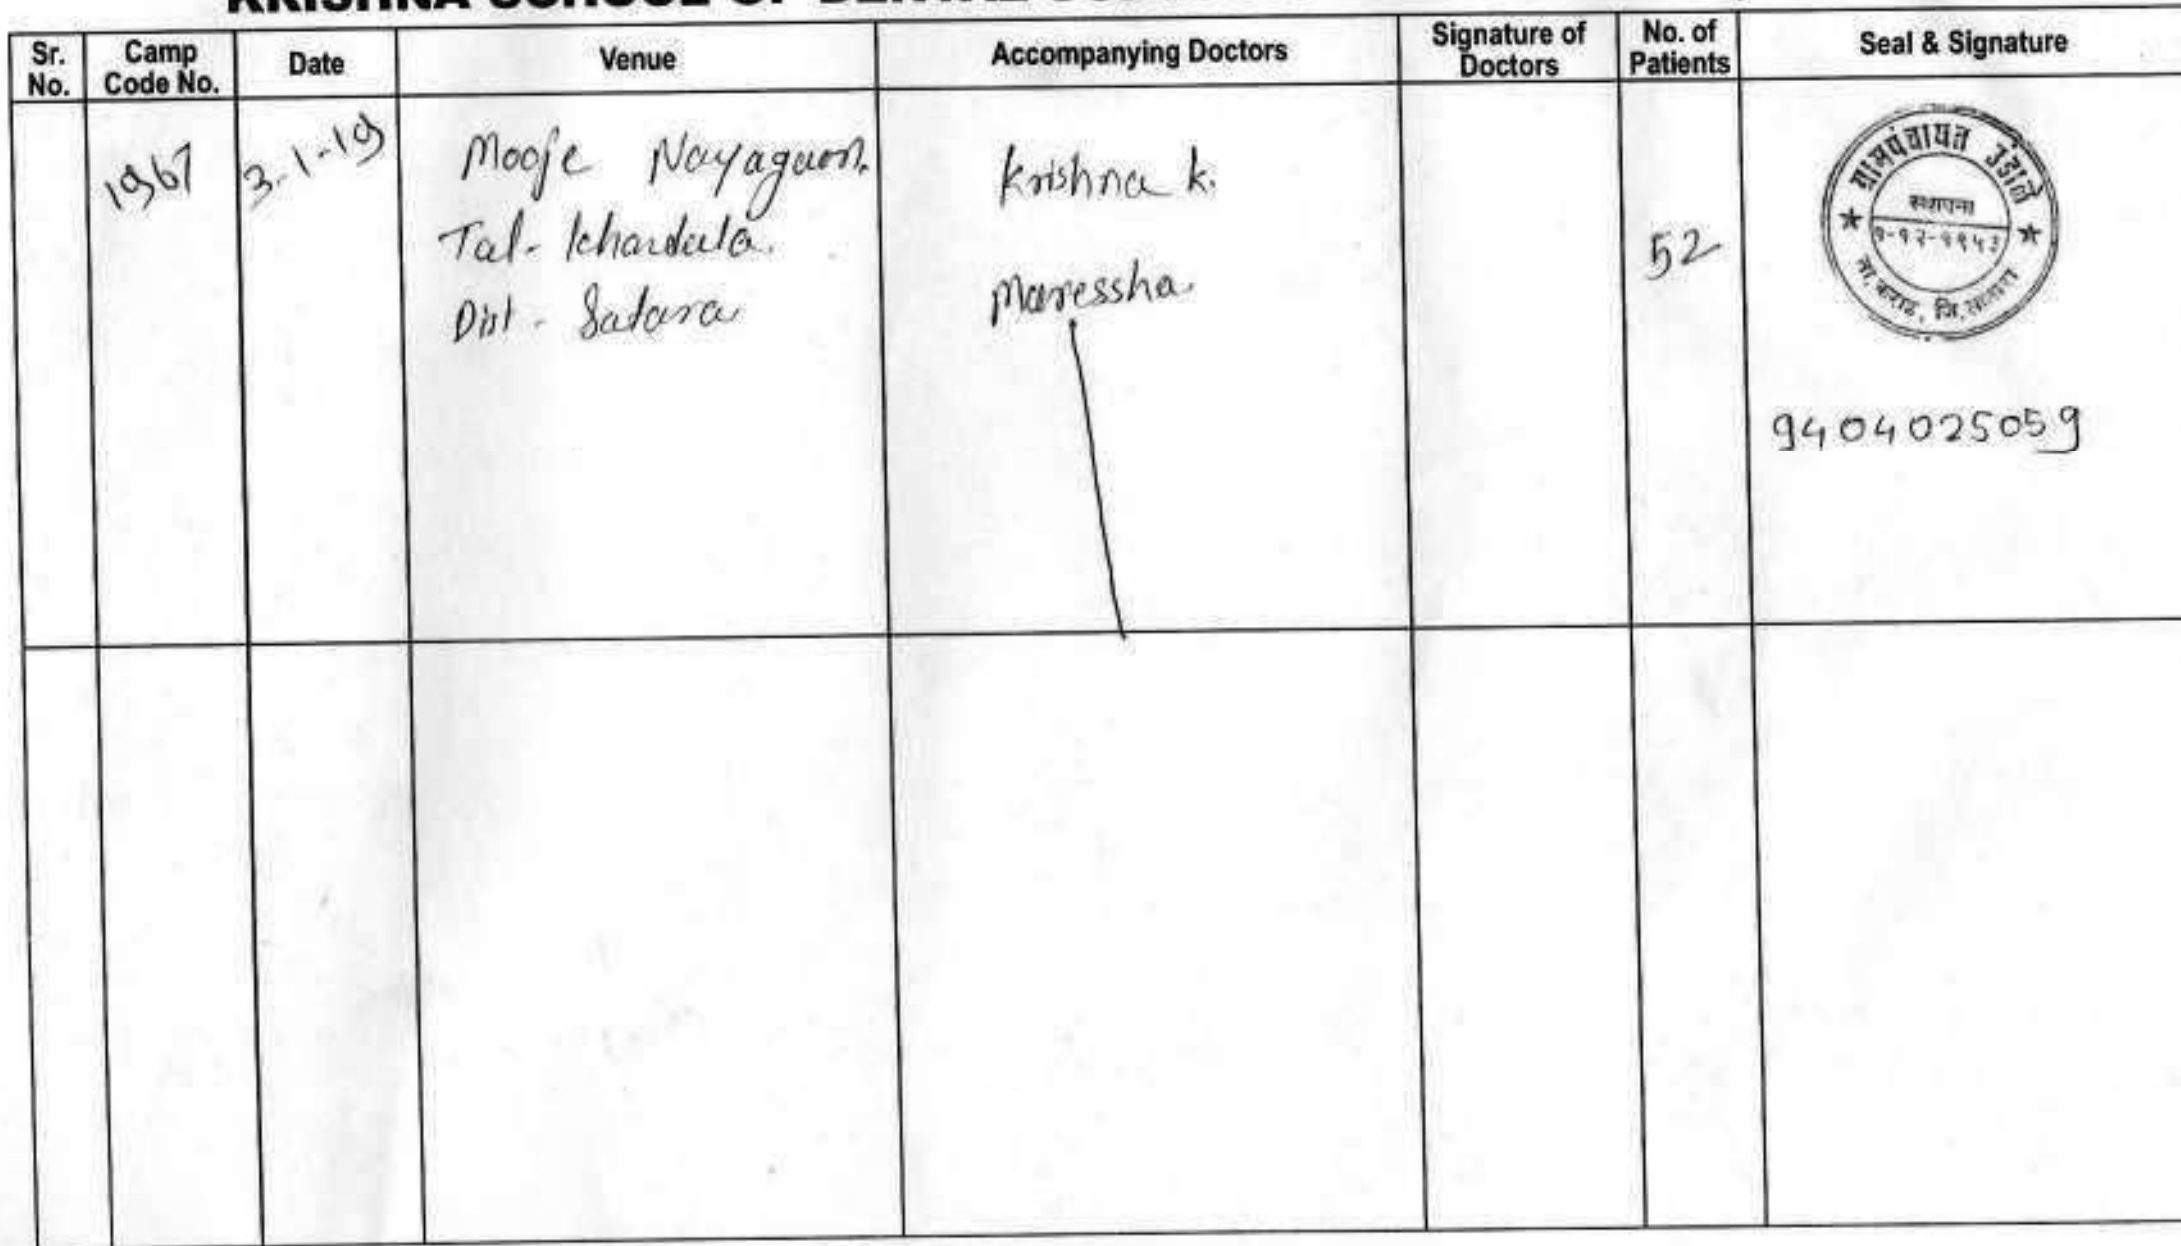 KRISHNA SCHOOL OF DENTAL
Sr. No.
Camp Code No.
Date
Venue
Accompanying Doctors
Signature of Doctors
No. of Patients
Seal & Signature
1967
3-1-19
Mooje Nayagaon.
Tal- khandala.
Dist - Satara
Krishna k.
Maressha.
52
ग्रामपंचायत उंडाले
स्थापना
१-१२-१९५३
ता. कराड, जि. सातारा
9404025059